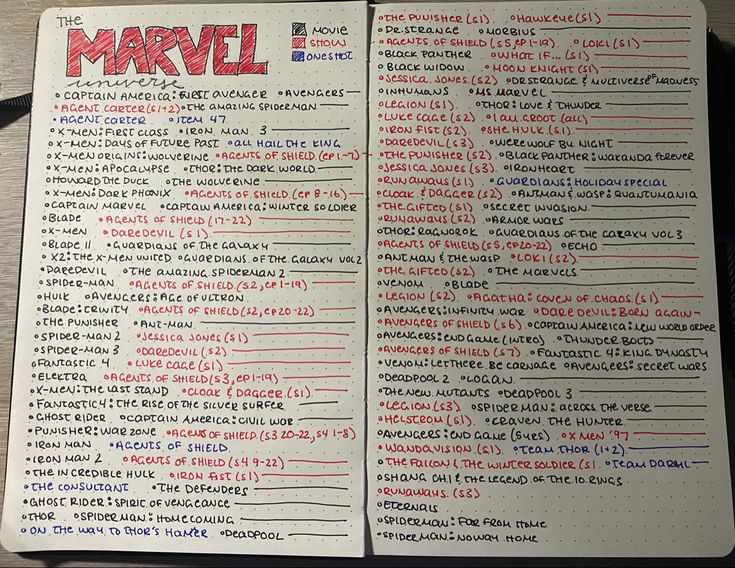 THE
MARVEL
universe
MOVIE
SHOW
ONESHOT
CAPTAIN AMERICA: FIRST AVENGER AVENGERS
AGENT CARTER (S1+2) THE AMAZING SPIDERMAN
AGENT CARTER ITEM 47
X-MEN: FIRST CLASS IRON MAN 3
X-MEN: DAYS OF FUTURE PAST ALL HAIL THE KING
X-MEN ORIGINS: WOLVERINE AGENTS OF SHIELD (EP 1-7)
X-MEN: APOCALYPSE THOR: THE DARK WORLD
HOWARD THE DUCK THE WOLVERINE
X-MEN: DARK PHOENIX AGENTS OF SHIELD (EP 8-16)
CAPTAIN MARVEL CAPTAIN AMERICA: WINTER SOLDIER
BLADE AGENTS OF SHIELD (17-22)
X-MEN DAREDEVIL (S1)
BLADE II GUARDIANS OF THE GALAXY
X2: THE X-MEN UNITED GUARDIANS OF THE GALAXY VOL 2
DAREDEVIL THE AMAZING SPIDERMAN 2
SPIDER-MAN AGENTS OF SHIELD (S2, EP 1-19)
HULK AVENGERS: AGE OF ULTRON
BLADE: TRINITY AGENTS OF SHIELD (S2, EP 20-22)
THE PUNISHER ANT-MAN
SPIDER-MAN 2 JESSICA JONES (S1)
SPIDER-MAN 3 DAREDEVIL (S2)
FANTASTIC 4 LUKE CAGE (S1)
ELEKTRA AGENTS OF SHIELD (S3, EP 1-19)
X-MEN: THE LAST STAND CLOAK & DAGGER (S1)
FANTASTIC 4: THE RISE OF THE SILVER SURFER
GHOST RIDER CAPTAIN AMERICA: CIVIL WAR
PUNISHER: WAR ZONE AGENTS OF SHIELD (S3 20-22, S4 1-8)
IRON MAN AGENTS OF SHIELD
IRON MAN 2 AGENTS OF SHIELD (S4 9-22)
THE INCREDIBLE HULK IRON FIST (S1)
THE CONSULTANT THE DEFENDERS
GHOST RIDER: SPIRIC OF VENGEANCE
THOR SPIDERMAN: HOMECOMING
ON THE WAY TO THOR'S HAMER DEADPOOL
THE PUNISHER (S1) HAWKEYE (S1)
DR. STRANGE MORBIUS
AGENTS OF SHIELD (S5, EP 1-19) LOKI (S1)
BLACK PANTHER WHAT IF... (S1)
BLACK WIDOW MOON KNIGHT (S1)
JESSICA JONES (S2) DR STRANGE & MULTIVERSE OF MADNESS
INHUMANS MS MARVEL
LEGION (S1) THOR: LOVE & THUNDER
LUKE CAGE (S2) I AM GROOT (ALL)
IRON FIST (S2) SHE HULK (S1)
DAREDEVIL (S3) WEREWOLF BY NIGHT
THE PUNISHER (S2) BLACK PANTHER: WAKANDA FOREVER
JESSICA JONES (S3) IRONHEART
RUNAWAYS (S1) GUARDIANS: HOLIDAY SPECIAL
CLOAK & DAGGER (S2) ANTMAN & WASP: QUANTUMANIA
THE GIFTED (S1) SECRET INVASION
RUNAWAYS (S2) ARMOR WARS
THOR: RAGNOROK GUARDIANS OF THE GALAXY VOL 3
AGENTS OF SHIELD (S5, EP 20-22) ECHO
ANTMAN & THE WASP LOKI (S2)
THE GIFTED (S2) THE MARVELS
VENOM BLADE
LEGION (S2) AGATHA: COVEN OF CHAOS (S1)
AVENGERS: INFINITY WAR DAREDEVIL: BORN AGAIN
AVENGERS OF SHIELD (S6) CAPTAIN AMERICA: NEW WORLD ORDER
AVENGERS: END GAME (INTRO) THUNDER BOLTS
AVENGERS OF SHIELD (S7) FANTASTIC 4: KING DYNASTY
VENOM: LET THERE BE CARNAGE AVENGERS: SECRET WARS
DEADPOOL 2 LOGAN
THE NEW MUTANTS DEADPOOL 3
LEGION (S3) SPIDERMAN: ACROSS THE VERSE
HELSTROM (S1) CRAVEN THE HUNTER
AVENGERS: END GAME (5 YRS) X MEN '97
WANDAVISION (S1) TEAM THOR (1+2)
THE FALCON & THE WINTER SOLDIER (S1 TEAM DARYL
SHANG CHI & THE LEGEND OF THE 10 RINGS
RUNAWAYS (S3)
ETERNALS
SPIDERMAN: FAR FROM HOME
SPIDERMAN: NO WAY HOME